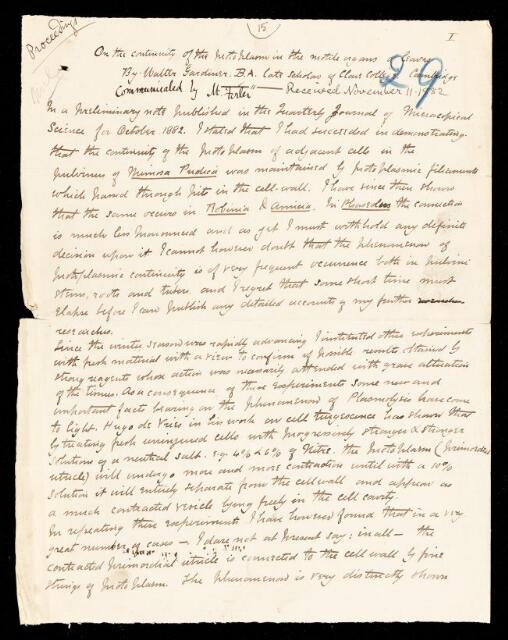 Proceedings
15
I
29
On the continuity of the Protoplasm in the motile organs of Leaves
By Walter Gardiner. B.A. late Scholar of Clare College Cambridge
Communicated by M. Foster — Received November 11. 1882
In a preliminary note published in the Quarterly Journal of Microscopical
Science for October 1882. I stated that I had succeeded in demonstrating
that the continuity of the Protoplasm of adjacent cells in the
pulvinus of Mimosa Pudica was maintained by protoplasmic filaments
which passed through pits in the cell-wall. I have since then shown
that the same occurs in Robinia & Amicia. In Phaseolus the connection
is much less pronounced and as yet I must withhold any definite
decision upon it I cannot however doubt that the phenomenon of
Protoplasmic continuity is of very frequent occurrence both in pulvini
stems, roots and tubers and I regret that some short time must
elapse before I can publish any detailed accounts of my further
researches.
Since the winter season was rapidly advancing I instituted other experiments
with fresh material with a view to confirm if possible results obtained by
strong reagents whose action was necessarily attended with grave alteration
of the tissues. As a consequence of these experiments some new and
important facts bearing on the phenomenon of Plasmolysis have come
to light. Hugo de Vries in his work on cell turgescence has shown that
by treating fresh uninjured cells with progressively stronger & stronger
solutions of a neutral salt. e.g. 4% & 6% of Nitre. the Protoplasm (Primordial
utricle) will undergo more and more contraction until with a 10%
solution it will entirely separate from the cell wall and appear as
a much contracted vesicle lying freely in the cell cavity.
In repeating these experiments I have however found that in a very
great number of cases — I dare not at present say; in all — the
contracted primordial utricle is connected to the cell wall by fine
strings of Protoplasm. The phenomenon is very distinctly shown